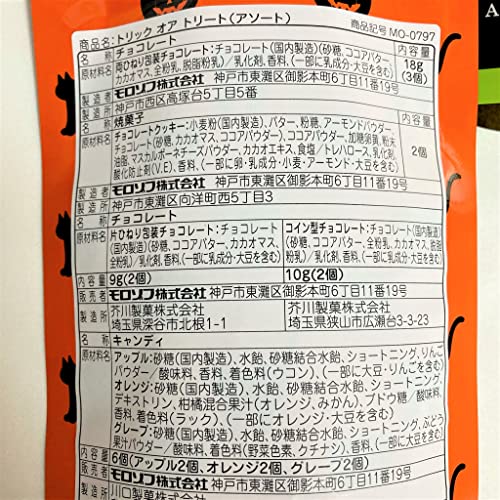 商品名:トリック オア トリート(アソート) 商品記号 MO-0797
A
名称 チョコレート 内容量
原材料名 両ひねり包装チョコレート:チョコレート(国内製造)(砂糖、ココアバター、
カカオマス、全粉乳、脱脂粉乳)/乳化剤、香料、(一部に乳成分・大豆を含む)
18g
(3個)
製造者 モロゾフ株式会社 神戸市東灘区御影本町6丁目11番19号
製造所 神戸市西区高塚台5丁目5番
名称 焼菓子 内容量
原材料名 チョコレートクッキー:小麦粉(国内製造)、バター、粉糖、アーモンドパウダー、
チョコレート(砂糖、カカオマス、ココアバター)、ココアパウダー、加糖卵黄、粉末
油脂、マスカルポーネチーズパウダー、カカオエキス、食塩/トレハロース、乳化剤、
酸化防止剤(V.E)、香料、(一部に卵・乳成分・小麦・アーモンド・大豆を含む)
2個
製造者 モロゾフ株式会社 神戸市東灘区御影本町6丁目11番19号
製造所 神戸市東灘区向洋町西5丁目3
名称 チョコレート
原材料名 片ひねり包装チョコレート:チョコレート
(国内製造)(砂糖、ココアバター、カカオマス、
全粉乳)/乳化剤、香料、(一部に乳成分・大豆を含む)
コイン型チョコレート:チョコレート(国内製造)
(砂糖、ココアバター、全粉乳、カカオマス、脱脂
粉乳)/乳化剤、香料、(一部に乳成分・大豆を含む)
内容量 9g(2個) 10g(2個)
販売者 モロゾフ株式会社 神戸市東灘区御影本町6丁目11番19号
製造所 芥川製菓株式会社
埼玉県深谷市北根1-1
芥川製菓株式会社
埼玉県狭山市広瀬台3-3-23
名称 キャンディ
原材料名 アップル:砂糖(国内製造)、水飴、砂糖結合水飴、ショートニング、りんご
パウダー/酸味料、香料、着色料(ウコン)、(一部に大豆・りんごを含む)
オレンジ:砂糖(国内製造)、水飴、砂糖結合水飴、ショートニング、
デキストリン、柑橘混合果汁(オレンジ、みかん)、ブドウ糖/酸味料、
香料、着色料(ラック)、(一部にオレンジ・大豆を含む)
グレープ:砂糖(国内製造)、水飴、砂糖結合水飴、ショートニング、ぶどう
果汁パウダー/酸味料、着色料(野菜色素、クチナシ)、香料、(一部に大豆を含む)
内容量 6個(アップル2個、オレンジ2個、グレープ2個)
販売者 モロゾフ株式会社 神戸市東灘区御影本町6丁目11番19号
製造所 川口製菓株式会社